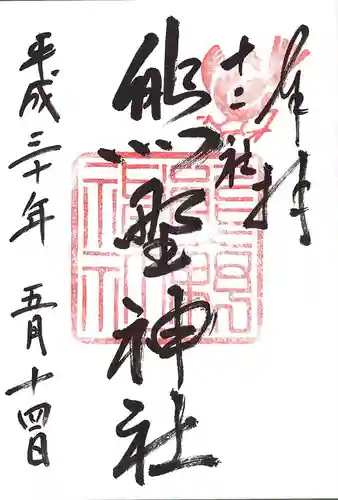 奉拝
十二社
熊野神社
平成三十年 五月十四日